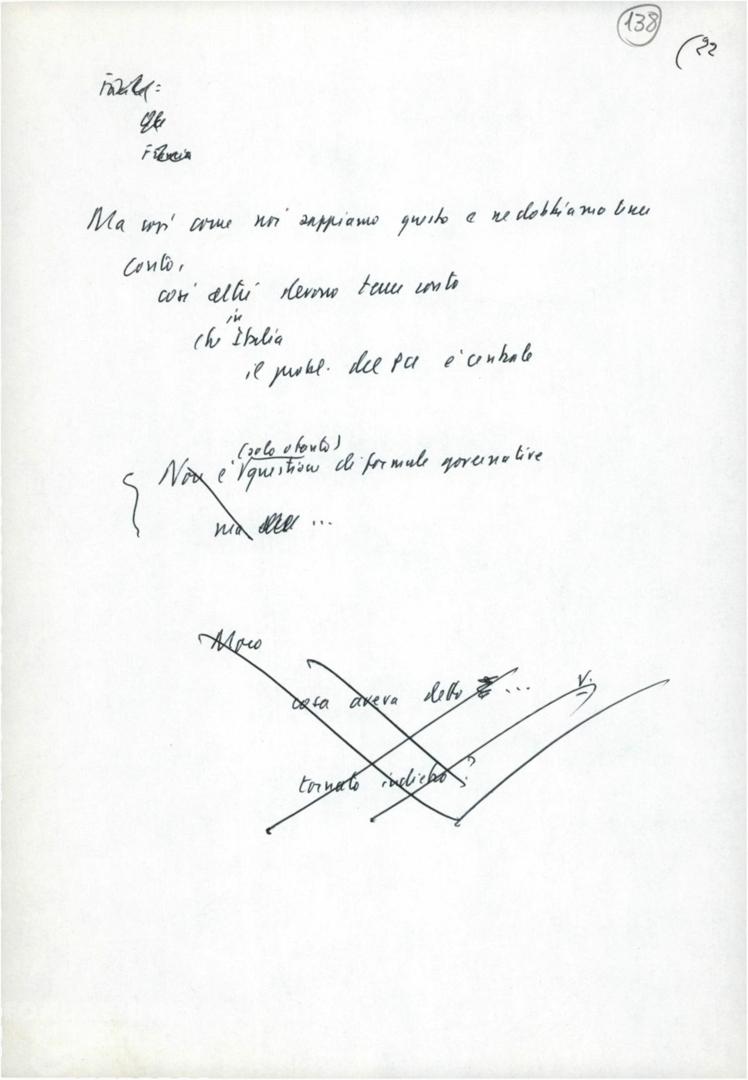 138
22
Ma così come noi sappiamo questo e ne dobbiamo tener
conto,
così altri devono tener conto
in
che Italia
il probl. del PCI è centrale
(solo o tanto)
Non è questione di formule governative
ma ...
Moro
cosa aveva detto ...
V.
tornato indietro ?